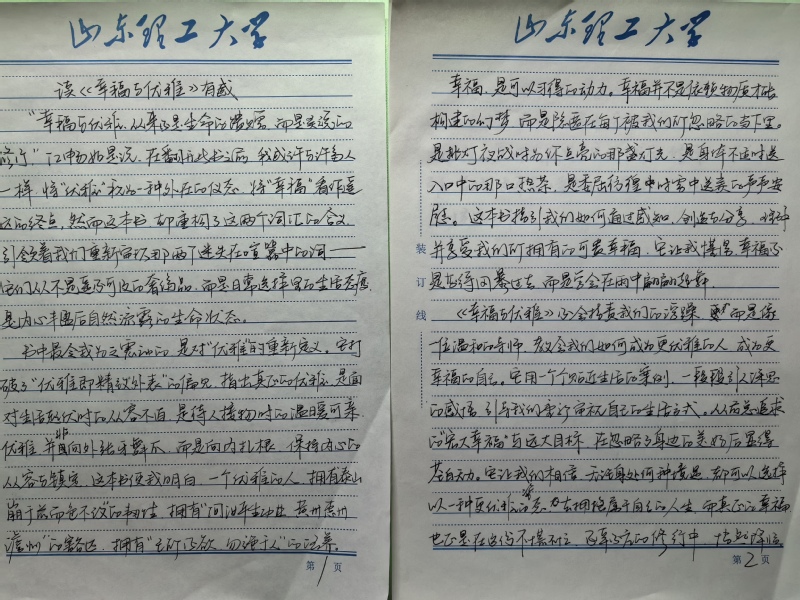 山东理工大学
读《幸福与优雅》有感
"幸福与优雅，从来不是生命的馈赠，而是灵魂的
修行。"江中如是说。在翻开此书之前，我或许与许多人
一样，将"优雅"视为一种外在的仪态，将"幸福"看作遥
远的终点，然而这本书，却重构了这两个词汇的含义，
引领着我们重新审视那两个迷失在喧嚣中的词——
它们从不是遥不可及的奢侈品，而是日常选择里的生活态度，
是内心丰盈后自然流露的生命状态。
书中最令我为之震动的，是对"优雅"的重新定义。它打
破了"优雅即精致外表"的偏见，指出真正的优雅，是面
对生活起伏时的从容不迫，是待人接物时的温暖可亲。
优雅并非向外张牙舞爪，而是向内扎根，保持内心的
从容与镇定。这本书使我明白，一个优雅的人，拥有"泰山
崩于前而色不改"的韧性，拥有"问汝平生功业，黄州惠州
儋州"的豁达，拥有"己所不欲，勿施于人"的涵养。
第1页
山东理工大学
幸福，是可以习得的动力。幸福并不是依赖物质才能
构建的幻梦，而是隐匿在每个被我们所忽略的当下里。
是挑灯夜战时为你点亮的那盏灯光，是身体不适时送
入口中的那口热茶，是委屈彷徨中时常中送来的声声安
慰。这本书指引我们如何通过感知、创造与分享，珍惜
并享受我们所拥有的可贵幸福。它让我懂得，幸福不
是等待风暴过去，而是学会在雨中翩翩起舞。
《幸福与优雅》不会指责我们的浮躁，而是像
一位温和的导师，教会我们如何成为更优雅的人，成为更
幸福的自己。它用一个个贴近生活的案例，一段段引人深思
的感悟，引导我们重新审视自己的生活方式。从前总追求
的"宏大幸福"与远大目标，在忽略了身边的美好后显得
苍白无力。它让我们相信，无论身处何种境遇，都可以选择
以一种更优雅的姿态，去拥抱属于自己的人生，而真正的幸福
也正是在这份不慌不忙、的修行中，悄然降临
装
订
线
第2页